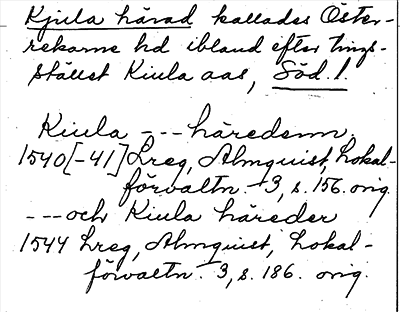 Kjula härad kallades Öster-
rekarne hd ibland efter tings-
stället Kiula aas, Söd. 1.
Kiula --- häredenn
1540[-41] Lreg, Almquist, Lokal-
förvaltn. 3, s. 156. orig.
--- och Kiula häreder
1544 Lreg, Almquist, Lokal-
förvaltn. 3, s. 186. orig.